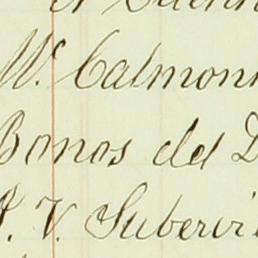 W. Calmon
Bonos del D
P. V. Subervi